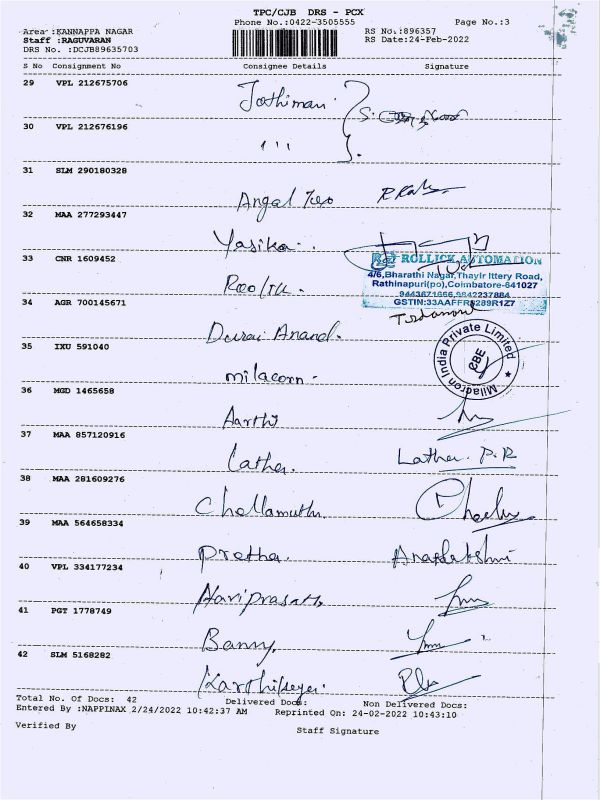 TPC/CJB DRS - PCX
Phone No.:0422-3505555 Page No.:3
Area :KANNAPPA NAGAR RS No.:896357
Staff :RAGUVARAN RS Date:24-Feb-2022
DRS No. :DCJB89635703
S No Consignment No Consignee Details Signature
29 VPL 212675706 Jothimani
30 VPL 212676196 "'
31 SLM 290180328
Angal
32 MAA 277293447
Yasika
33 CNR 1609452 ROLLICK AUTOMATION
4/6,Bharathi Nagar,Thayir Ittery Road,
Rathinapuri(po),Coimbatore-641027
GSTIN:33AAFFR8289R1Z7
34 AGR 700145671
Durai Anand.
35 IXU 591040 Milacron India Private Limited
CBE
milacorn
36 MGD 1465658
Aarthi
37 MAA 857120916
Latha. Latha. P.R
38 MAA 281609276
Chellamuthu
39 MAA 564658334
Pretha.
40 VPL 334177234
Hariprasath
41 PGT 1778749
Banny
42 SLM 5168282
Karthikeyen.
Total No. Of Docs: 42 Delivered Docs: Non Delivered Docs:
Entered By :NAPPINAX 2/24/2022 10:42:37 AM Reprinted On: 24-02-2022 10:43:10
Verified By Staff Signature